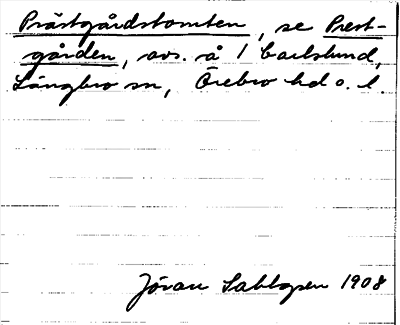 Prästgårdstomten, se Prest-
gården, avs. å 1 Carlslund,
Långbro sn, Örebro hd o. l.
Jöran Sahlgren 1908